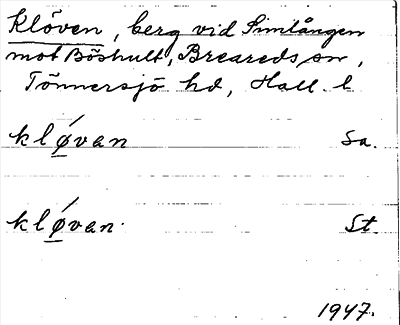 Klöven, berg vid Simlången
mot Böshult, Breareds sn,
Tönnersjö hd, Hall. l
klǿ̲van Sa.
klǿ̲van. St.
1947.